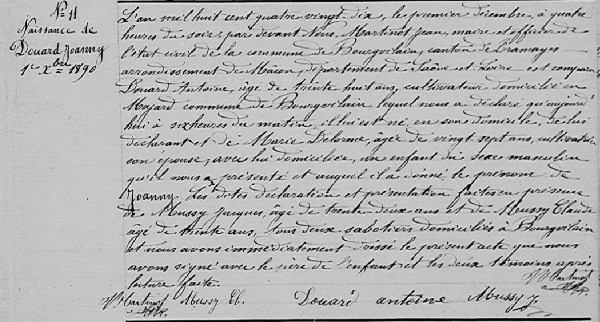 No 11
Naissance de
Douard Joanny
1er Xbre 1890
L'an mil huit cent quatre vingt dix, le premier décembre, à quatre
heures du soir, par devant Nous, Martinot Jean, maire et officier de
l'état civil de la commune de Bourgvilain, canton de Tramayes
arrondissement de Mâcon, département de Saône et Loire est comparu
Douard Antoine, âgé de trente huit ans, cultivateur domicilié en
commune de Bourgvilain lequel nous a déclaré qu'aujourd'
hui à six heures du matin, il lui est né, en son domicile, de lui
déclarant et de Marie Delorme, âgée de vingt sept ans, cultivatrice
son épouse, avec lui domiciliée, un enfant du sexe masculin
qu'il nous a présenté et auquel il a donné le prénom de
Joanny. Les dites déclaration et présentation faites en présence
de Mussy Jacques, âgé de trente deux ans et de Mussy Claude
âgé de trente ans, tous deux sabotiers domiciliés à Bourgvilain
et nous avons immédiatement dressé le présent acte que nous
avons signé avec le père de l'enfant et les deux témoins après
lecture faite.
Martinot
Martinot Mussy Cl. Douard antoine Mussy J.